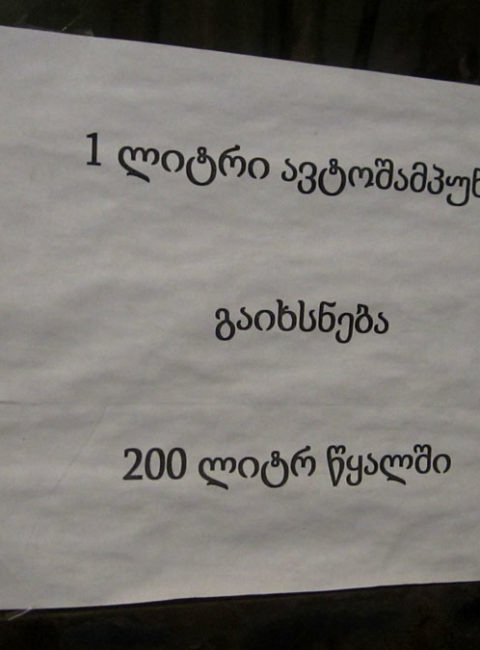 1 ლიტრი ავტოშამპუნ
გაიხსნება
200 ლიტრ წყალში